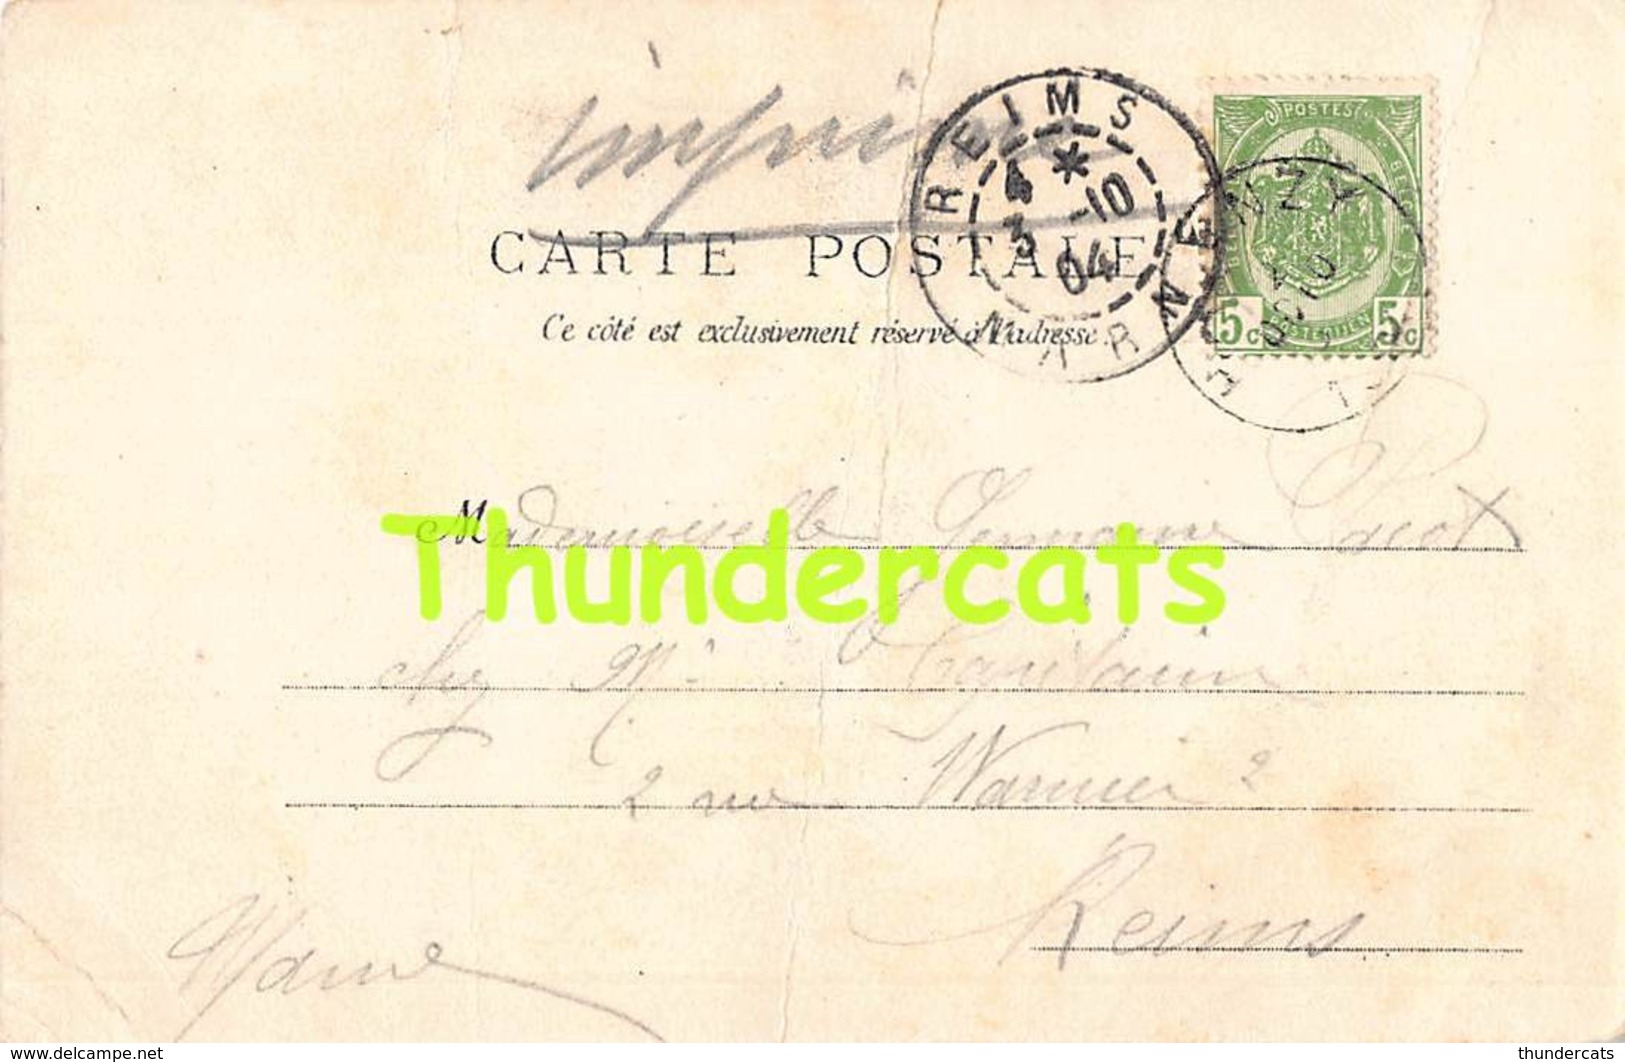 imprimé
REIMS
4 *
3 -10
04
MARNE
POSTES
5c 5c
CARTE POSTALE
Ce côté est exclusivement réservé à l'adresse.
Mademoiselle Germaine
Thundercats
chez Mr
2 rue Warnier 2
Reims
Marne
www.delcampe.net
thundercats